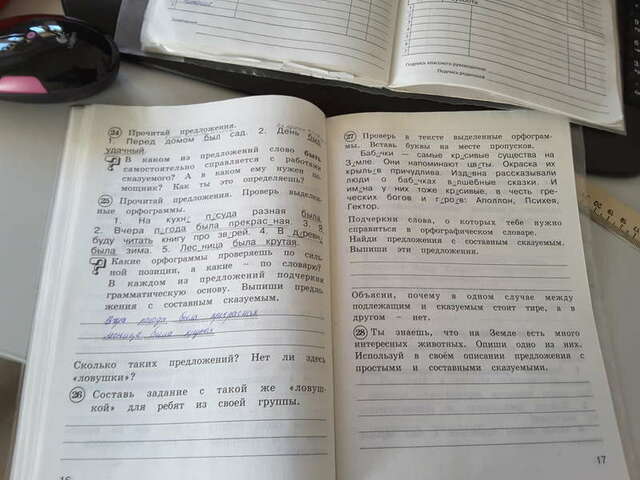 Подпись классного руководителя
Подпись родителей
24 Прочитай предложения.
1. Перед домом был сад. 2. День был
удачный.
В каком из предложений слово быть
самостоятельно справляется с работой
сказуемого? А в каком ему нужен по-
мощник? Как ты это определяешь?
25 Прочитай предложения. Проверь выделен-
ные орфограммы.
1. На кухн_ п_суда разная была.
2. Вчера п_года была прекрас_ная. 3. Я
буду читать книгу про зв_рей. 4. В д_ревн_
была зима. 5. Лес_ница была крутая.
Какие орфограммы проверяешь по силь-
ной позиции, а какие – по словарю?
В каждом из предложений подчеркни
грамматическую основу. Выпиши предло-
жения с составным сказуемым.
Вчера погода была прекрасная
была крутая
Сколько таких предложений? Нет ли здесь
«ловушки»?
26 Составь задание с такой же «ловуш-
кой» для ребят из своей группы.
16
27 Проверь в тексте выделенные орфограм-
мы. Вставь буквы на месте пропусков.
Баб_чки — самые кр_сивые существа на
З_мле. Они напоминают цв_ты. Окраска их
крыл_в причудлива. Изд_вна рассказывали
люди о баб_чках в_лшебные сказки. И
им_на у них тоже кр_сивые, в честь гре-
ческих богов и г_ро_в: Аполлон, Психея,
Гектор.
Подчеркни слова, о которых тебе нужно
справиться в орфографическом словаре.
Найди предложения с составным сказуемым.
Выпиши эти предложения.
Объясни, почему в одном случае между
подлежащим и сказуемым стоит тире, а в
другом – нет.
28 Ты знаешь, что на Земле есть много
интересных животных. Опиши одно из них.
Используй в своём описании предложения с
простыми и составными сказуемыми.
17